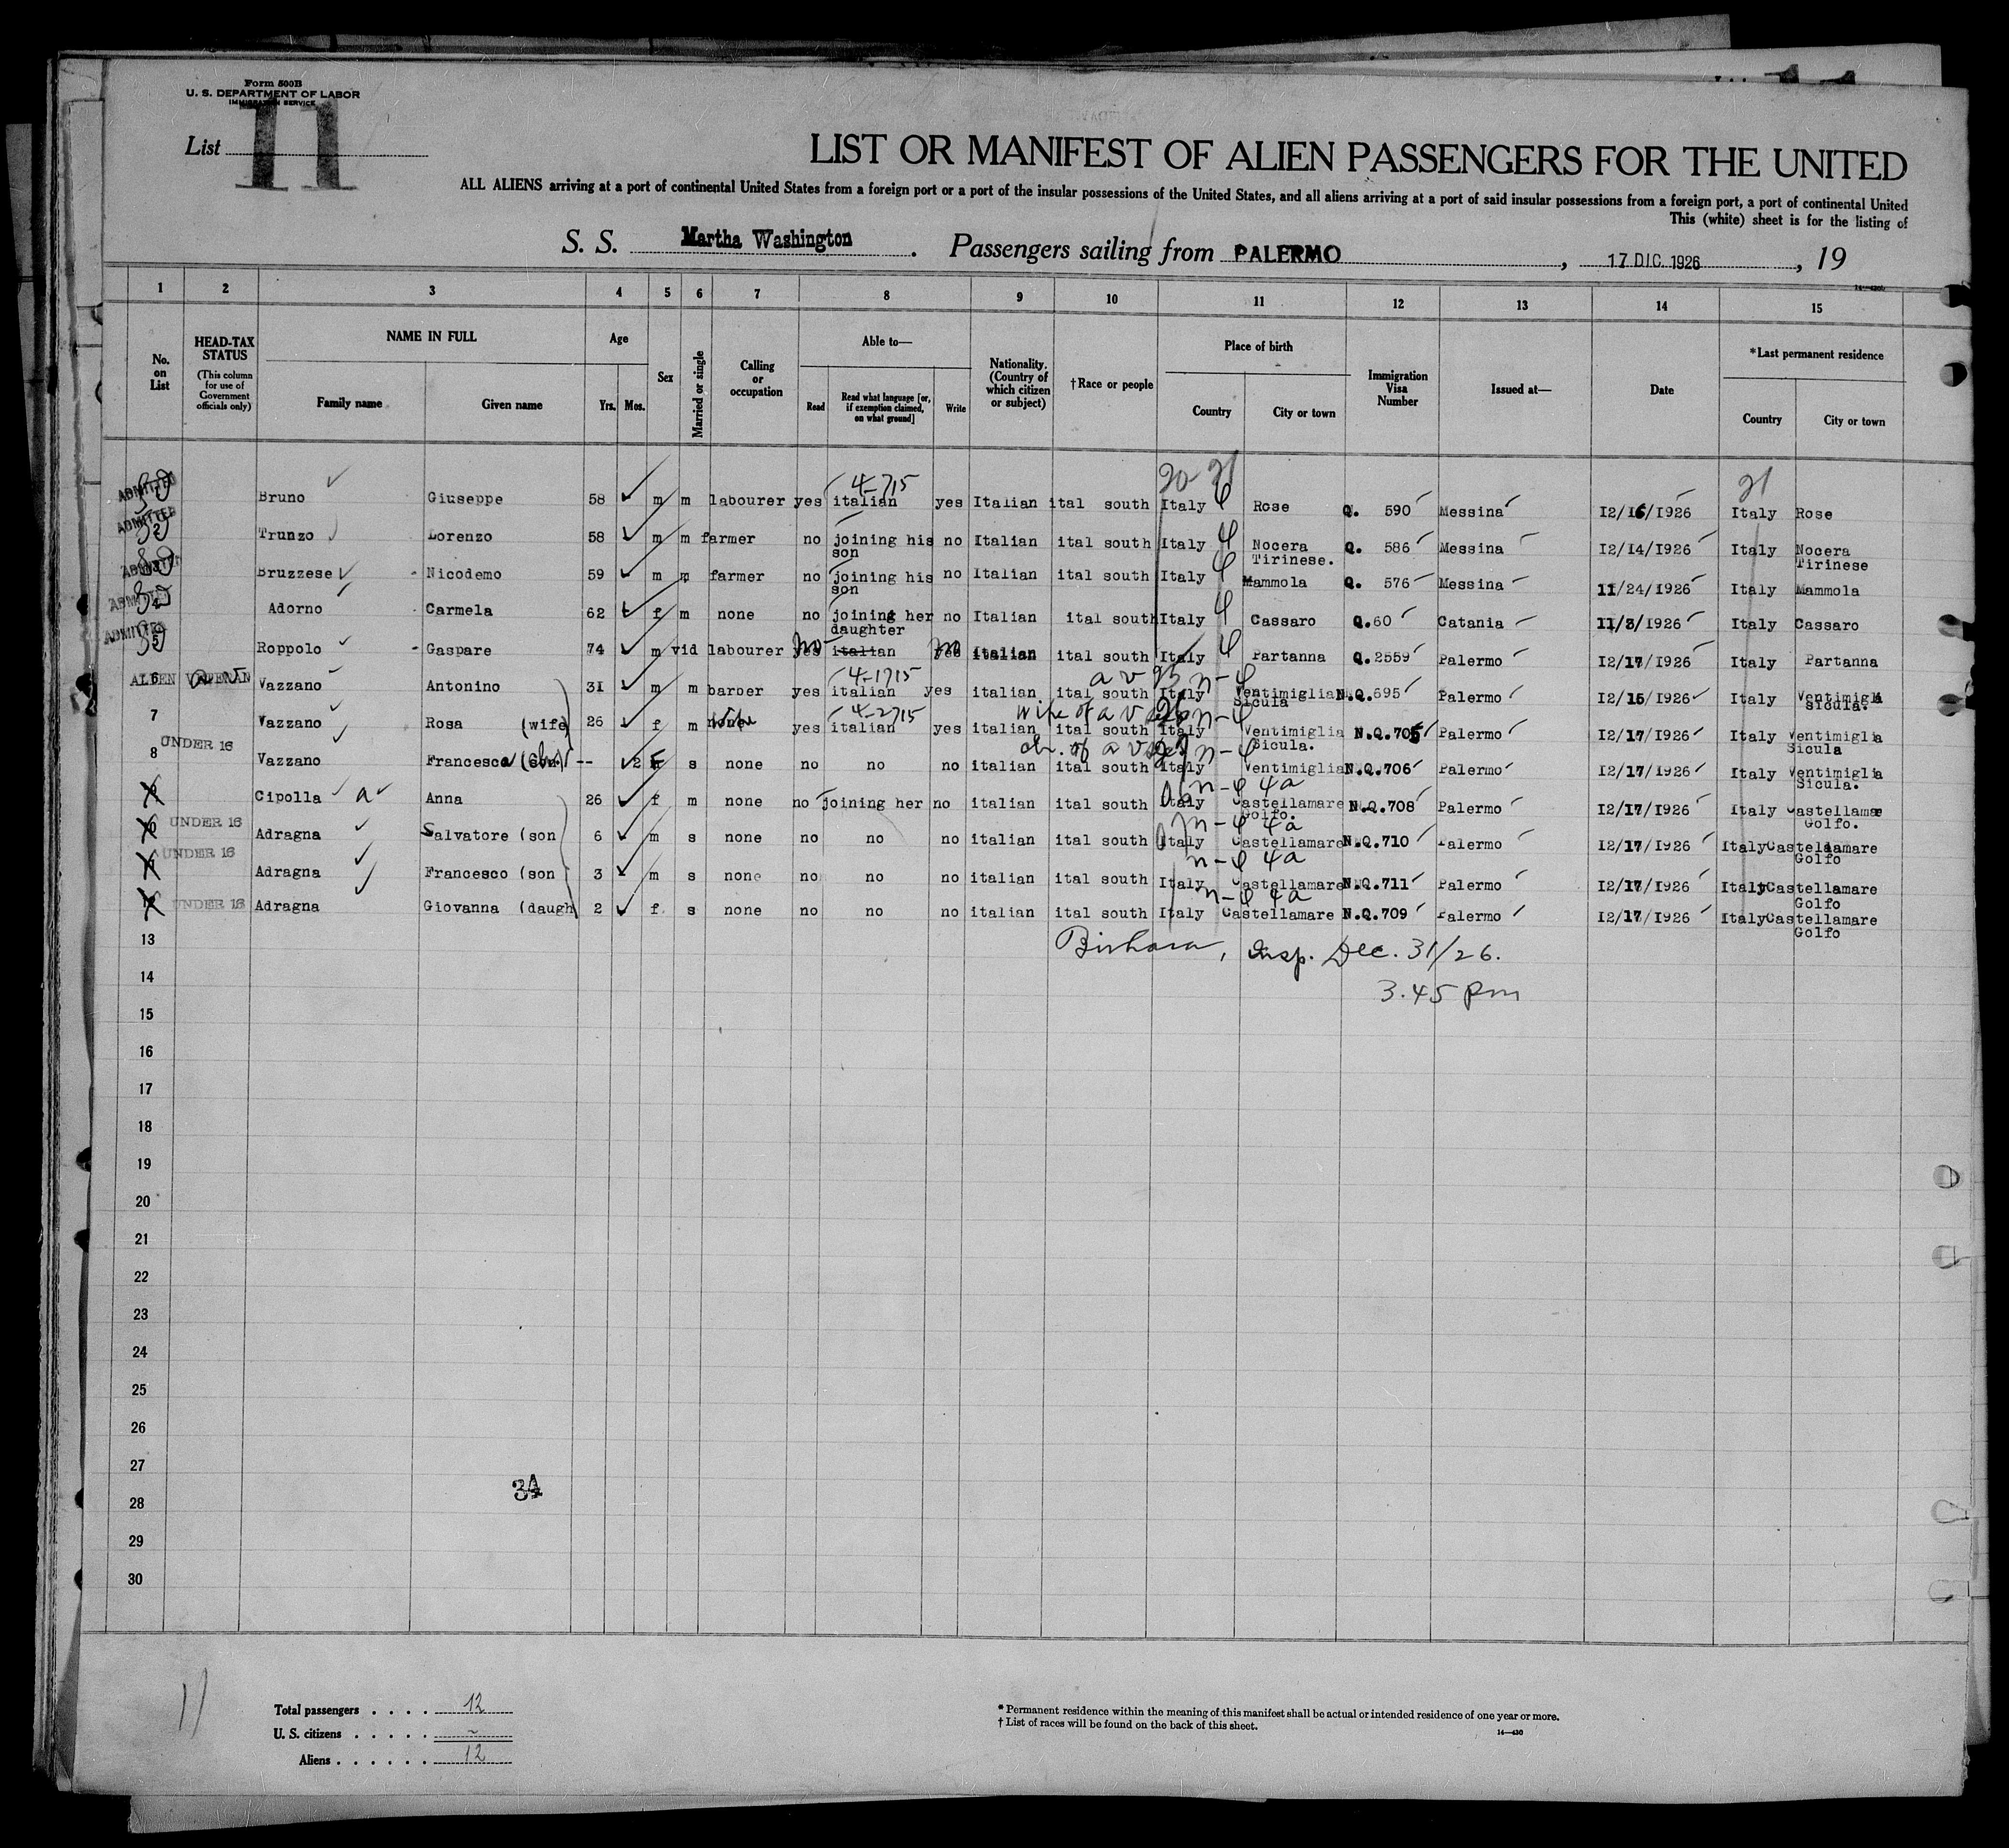 Form 500B
U. S. DEPARTMENT OF LABOR
IMMIGRATION SERVICE
List 11
LIST OR MANIFEST OF ALIEN PASSENGERS FOR THE UNITED
ALL ALIENS arriving at a port of continental United States from a foreign port or a port of the insular possessions of the United States, and all aliens arriving at a port of said insular possessions from a foreign port, a port of continental United
This (white) sheet is for the listing of
S. S. Martha Washington. Passengers sailing from PALERMO, 17 DIC. 1926, 19
1 2 3 4 5 6 7 8 9 10 11 12 13 14 15
No. on List
HEAD-TAX STATUS
(This column for use of Government officials only)
NAME IN FULL
Family name Given name
Age
Yrs. Mos.
Sex
Married or single
Calling or occupation
Able to—
Read
Read what language [or, if exemption claimed, on what ground]
Write
Nationality. (Country of which citizen or subject)
†Race or people
Place of birth
Country City or town
Immigration Visa Number
Issued at—
Date
*Last permanent residence
Country City or town
20 21 21
4-715
ADMITTED Bruno Giuseppe 58 m m labourer yes italian yes Italian ital south Italy Rose Q. 590 Messina 12/16/1926 Italy Rose
ADMITTED 2 Trunzo Lorenzo 58 m m farmer no joining his son no Italian ital south Italy Nocera Tirinese. Q. 586 Messina 12/14/1926 Italy Nocera Tirinese
ADMITTED Bruzzese Nicodemo 59 m m farmer no joining his son no Italian ital south Italy Mammola Q. 576 Messina 11/24/1926 Italy Mammola
ADMITTED Adorno Carmela 62 f m none no joining her daughter no Italian ital south Italy Cassaro Q.60 Catania 11/3/1926 Italy Cassaro
ADMITTED 5 Roppolo Gaspare 74 m vid labourer yes no italian yes no Italian ital south Italy Partanna Q.2559 Palermo 12/17/1926 Italy Partanna
4-1715 a v n-4
ALIEN VETERAN 6 Vazzano Antonino 31 m m barber yes italian yes italian ital south Italy Ventimiglia Sicula N.Q.695 Palermo 12/16/1926 Italy Ventimiglia Sicula.
4-2715 wife of a v n-4
7 Vazzano Rosa (wife) 26 f m none yes italian yes italian ital south Italy Ventimiglia Sicula. N.Q.705 Palermo 12/17/1926 Italy Ventimiglia Sicula
ch. of a v n-4
UNDER 16 8 Vazzano Francesca -- 2 F s none no no no italian ital south Italy Ventimiglia N.Q.706 Palermo 12/17/1926 Italy Ventimiglia Sicula.
n-4 4a
9 Cipolla a Anna 26 f m none no joining her no italian ital south Italy Castellamare Golfo. N.Q.708 Palermo 12/17/1926 Italy Castellamae Golfo.
n-4 4a
10 UNDER 16 Adragna Salvatore (son 6 m s none no no no italian ital south Italy Castellamare N.Q.710 Palermo 12/17/1926 Italy Castellamare Golfo
n-4 4a
11 UNDER 16 Adragna Francesco (son 3 m s none no no no italian ital south Italy Castellamare N.Q.711 Palermo 12/17/1926 Italy Castellamare Golfo
n-4 4a
12 UNDER 16 Adragna Giovanna (daugh 2 f s none no no no italian ital south Italy Castellamare N.Q.709 Palermo 12/17/1926 Italy Castellamare Golfo
13 Insp. Dec. 31/26.
14 3.45 pm
15
16
17
18
19
20
21
22
23
24
25
26
27
34
28
29
30
11
Total passengers . . . . 12
U. S. citizens . . . . . ~
Aliens . . . . . . 12
* Permanent residence within the meaning of this manifest shall be actual or intended residence of one year or more.
† List of races will be found on the back of this sheet.
14—430